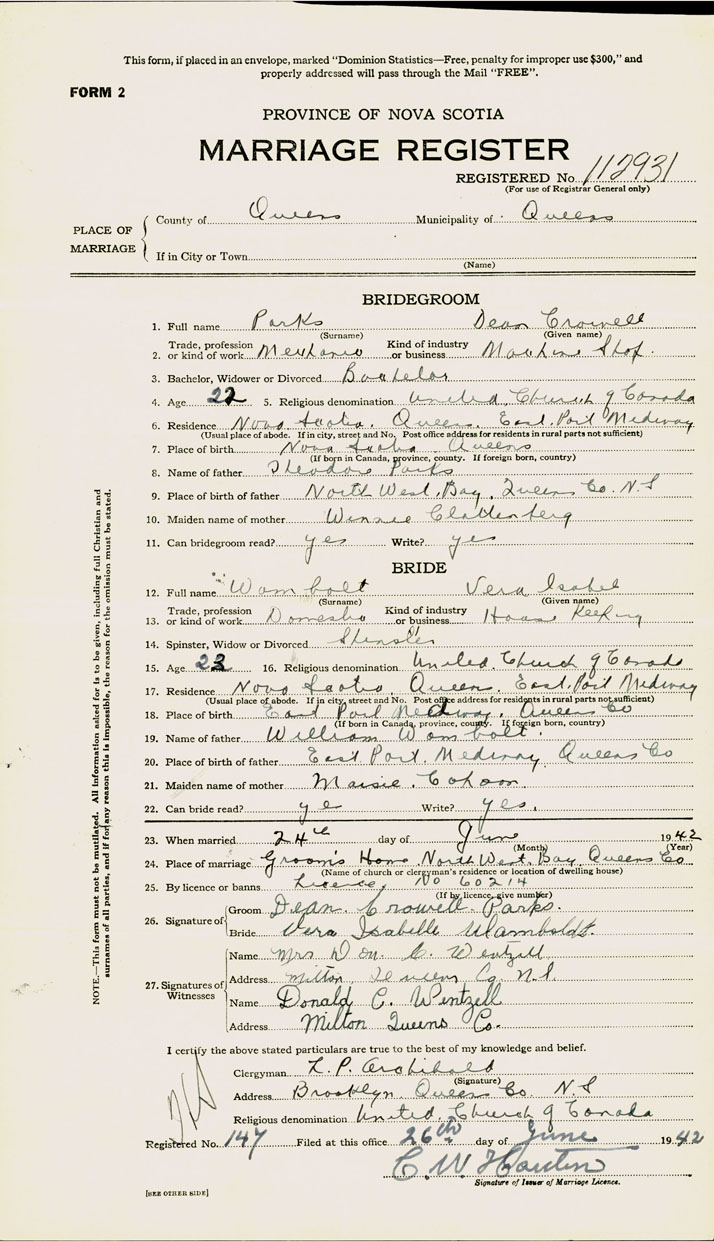 This form, if placed in an envelope, marked "Dominion Statistics—Free, penalty for improper use $300," and
properly addressed will pass through the Mail "FREE".
FORM 2
PROVINCE OF NOVA SCOTIA
MARRIAGE REGISTER
REGISTERED No. 112931
(For use of Registrar General only)
PLACE OF MARRIAGE
County of Queens Municipality of Queens
If in City or Town
(Name)
BRIDEGROOM
1. Full name Parks Dean Crowell
(Surname) (Given name)
2. Trade, profession or kind of work Mechanic Kind of industry or business Machine Shop.
3. Bachelor, Widower or Divorced Bachelor
4. Age 22 5. Religious denomination United Church of Canada
6. Residence Nova Scotia, Queens, East Port Medway
(Usual place of abode. If in city, street and No. Post office address for residents in rural parts not sufficient)
7. Place of birth Nova Scotia Queens
(If born in Canada, province, county. If foreign born, country)
8. Name of father Theodore Parks
9. Place of birth of father North West, Bay, Queens Co. N.S
10. Maiden name of mother Winnie Clattenberg
11. Can bridegroom read? yes Write? yes
BRIDE
12. Full name Wambolt Vera Isabel
(Surname) (Given name)
13. Trade, profession or kind of work Domestic Kind of industry or business House Keeping
14. Spinster, Widow or Divorced Spinster
15. Age 23 16. Religious denomination United Church of Canada
17. Residence Nova Scotia, Queens, East Port Medway
(Usual place of abode. If in city, street and No. Post office address for residents in rural parts not sufficient)
18. Place of birth East Port Medway, Queens Co
(If born in Canada, province, county. If foreign born, country)
19. Name of father William Wambolt.
20. Place of birth of father East Port Medway Queens Co
21. Maiden name of mother Maisie Cohoon
22. Can bride read? ye Write? yes.
23. When married 24th day of June 1942
(Month) (Year)
24. Place of marriage Groom's Home North West, Bay, Queens Co
(Name of church or clergyman's residence or location of dwelling house)
25. By licence or banns Licence, No 60214
(If by licence, give number)
26. Signature of
Groom Dean Crowell Parks.
Bride Vera Isabelle Wamboldt.
27. Signatures of Witnesses
Name Mrs Don. C. Wentzell
Address Milton, Queens Co. N.S.
Name Donald C. Wentzell
Address Milton Queens Co.
I certify the above stated particulars are true to the best of my knowledge and belief.
Clergyman L. P. Archibald
(Signature)
Address Brooklyn, Queens Co. N.S
Religious denomination United Church of Canada
Registered No. 147 Filed at this office 26th day of June 1942
Signature of Issuer of Marriage Licence.
[SEE OTHER SIDE]
NOTE.—This form must not be mutilated. All information asked for is to be given, including full Christian and
surnames of all parties, and if for any reason this is impossible, the reason for the omission must be stated.